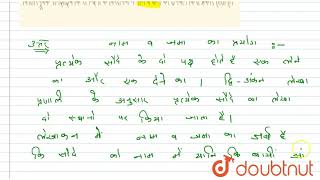 उत्तर नाम व जमा का प्रयोग :-
प्रत्येक सौदे के दो पक्ष होते हैं एक लेने
का और एक देने का । द्वि-अंकन लेखा
प्रणाली के अनुसार प्रत्येक सौदे का लेखा
दो स्थानों पर किया जाता है ।
लेखांकन में नाम व जमा का अर्थ है
कि सौदे को नाम में यानि कि बायीं ओर
doubtnut